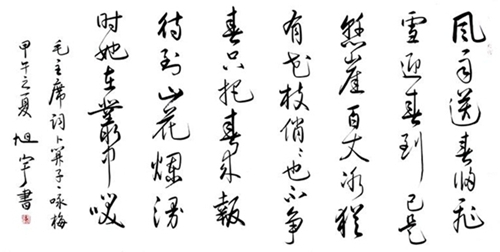 风雨送春归飞
雪迎春到已是
悬崖百丈冰犹
有花枝俏々也不争
春只把春来報
待到山花爛漫
时她在叢中咲
毛主席词卜算子·咏梅
甲午之夏旭宇書